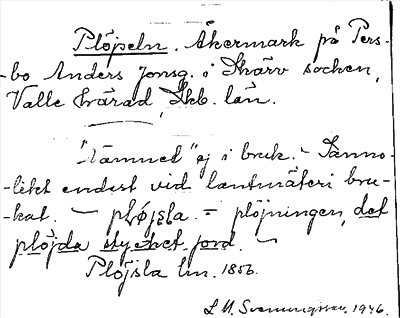 Plöjseln. Åkermark på Pers-
-bo Anders Jonsg. i Skärv socken,
Valle härad, Skb. län.
"Namnet" ej i bruk. - Sanno-
-likt endast vid lantmäteri bru-
-kat. - pløjsla = plöjningen, det
plöjda stycket jord. -
Plöjsla lm. 1856.
L. M. Svenungsson. 1946.